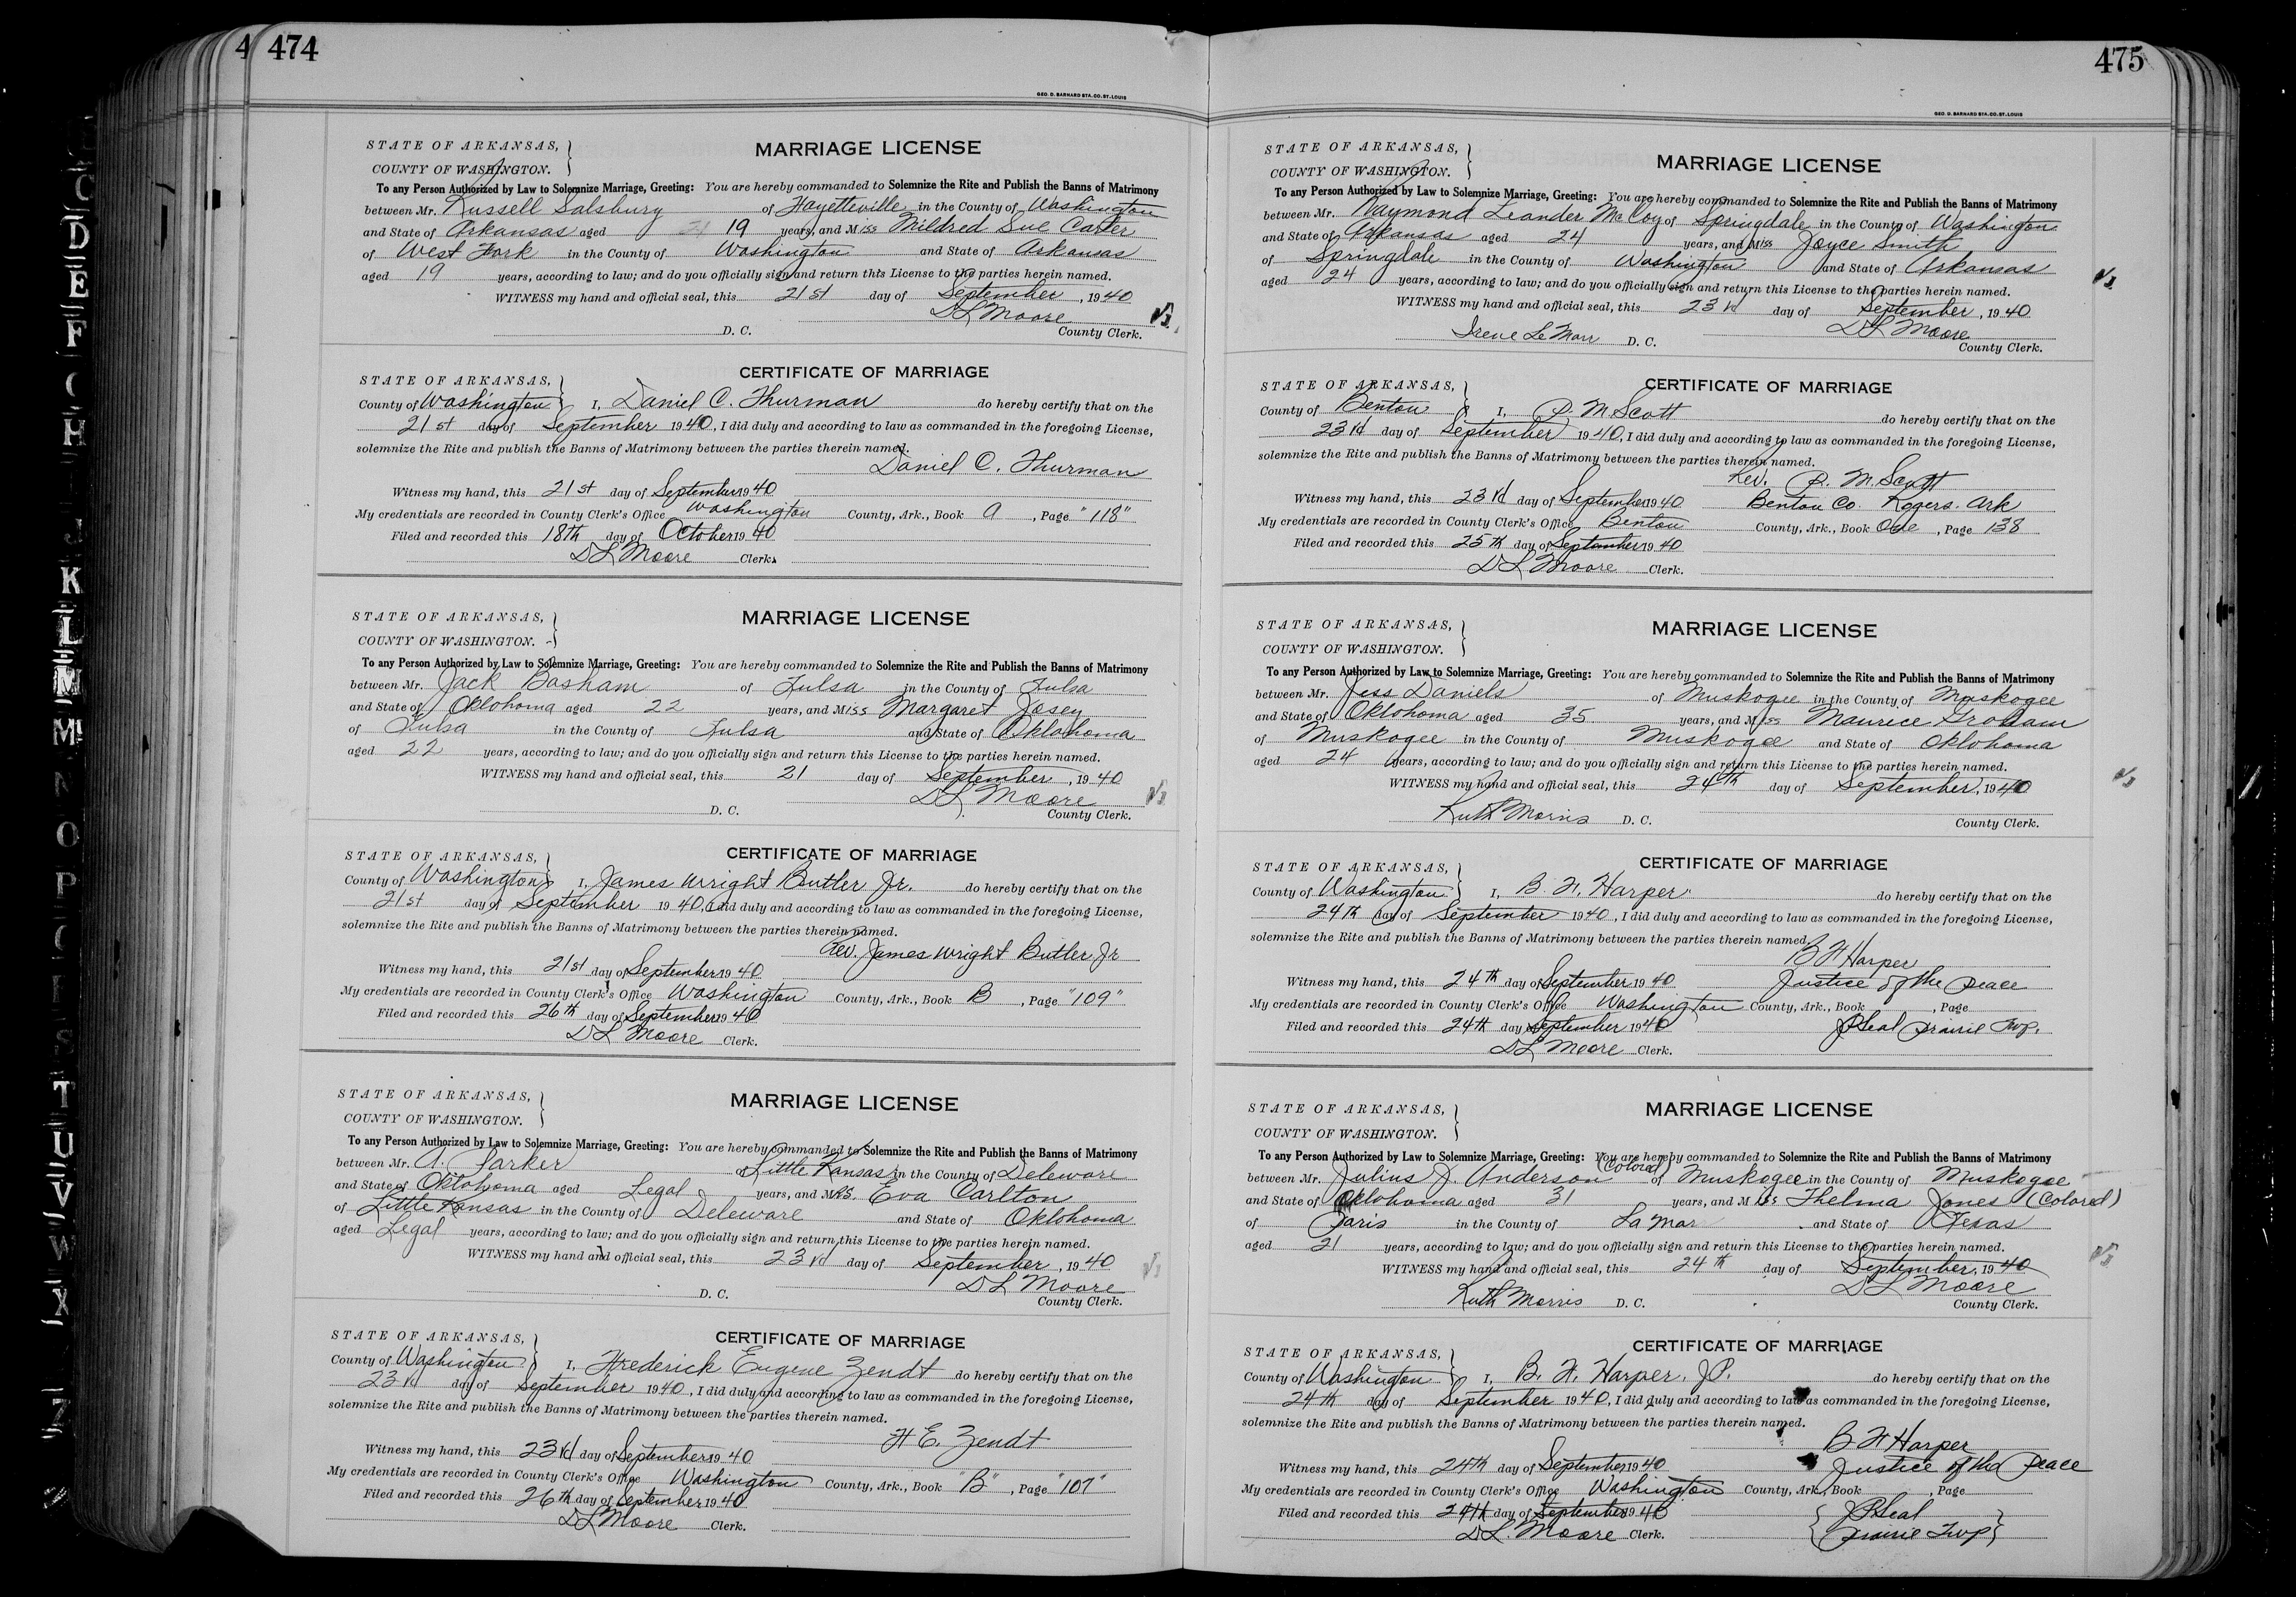 4 474
GEO. D. BARNARD STA. CO. ST. LOUIS
STATE OF ARKANSAS,
COUNTY OF WASHINGTON.
MARRIAGE LICENSE
To any Person Authorized by Law to Solemnize Marriage, Greeting: You are hereby commanded to Solemnize the Rite and Publish the Banns of Matrimony
between Mr. Russell Salsbury of Fayetteville in the County of Washington
and State of Arkansas aged 19 years, and Miss Mildred Sue Carter
of West Fork in the County of Washington and State of Arkansas
aged 19 years, according to law; and do you officially sign and return this License to the parties herein named.
WITNESS my hand and official seal, this 21st day of September, 1940
D L Moore
D. C. County Clerk.
CERTIFICATE OF MARRIAGE
STATE OF ARKANSAS,
County of Washington I, Daniel C. Thurman do hereby certify that on the
21st day of September 1940, I did duly and according to law as commanded in the foregoing License,
solemnize the Rite and publish the Banns of Matrimony between the parties therein named.
Daniel C. Thurman
Witness my hand, this 21st day of September 1940
My credentials are recorded in County Clerk's Office Washington County, Ark., Book A, Page "118"
Filed and recorded this 18th day of October 1940
D L Moore Clerk.
STATE OF ARKANSAS,
COUNTY OF WASHINGTON.
MARRIAGE LICENSE
To any Person Authorized by Law to Solemnize Marriage, Greeting: You are hereby commanded to Solemnize the Rite and Publish the Banns of Matrimony
between Mr. Jack Basham of Tulsa in the County of Tulsa
and State of Oklohoma aged 22 years, and Miss Margaret Josey
of Tulsa in the County of Tulsa and State of Oklohoma
aged 22 years, according to law; and do you officially sign and return this License to the parties herein named.
WITNESS my hand and official seal, this 21 day of September, 1940
D L Moore
D. C. County Clerk.
CERTIFICATE OF MARRIAGE
STATE OF ARKANSAS,
County of Washington I, James Wright Butler Jr. do hereby certify that on the
21st day of September 1940, I did duly and according to law as commanded in the foregoing License,
solemnize the Rite and publish the Banns of Matrimony between the parties therein named.
Rev. James Wright Butler Jr
Witness my hand, this 21st day of September 1940
My credentials are recorded in County Clerk's Office Washington County, Ark., Book B, Page "109"
Filed and recorded this 26th day of September 1940
D L Moore Clerk.
STATE OF ARKANSAS,
COUNTY OF WASHINGTON.
MARRIAGE LICENSE
To any Person Authorized by Law to Solemnize Marriage, Greeting: You are hereby commanded to Solemnize the Rite and Publish the Banns of Matrimony
between Mr. A. Parker of Little Kansas in the County of Deleware
and State of Oklohoma aged Legal years, and MRS. Eva Carlton
of Little Kansas in the County of Deleware and State of Oklohoma
aged Legal years, according to law; and do you officially sign and return this License to the parties herein named.
WITNESS my hand and official seal, this 23rd day of September, 1940
D L Moore
D. C. County Clerk.
CERTIFICATE OF MARRIAGE
STATE OF ARKANSAS,
County of Washington I, Frederick Eugene Zendt do hereby certify that on the
23rd day of September 1940, I did duly and according to law as commanded in the foregoing License,
solemnize the Rite and publish the Banns of Matrimony between the parties therein named.
F E. Zendt
Witness my hand, this 23rd day of September 1940
My credentials are recorded in County Clerk's Office Washington County, Ark., Book "B", Page "107"
Filed and recorded this 26th day of September 1940
D L Moore Clerk.
475
GEO. D. BARNARD STA. CO. ST. LOUIS
STATE OF ARKANSAS,
COUNTY OF WASHINGTON.
MARRIAGE LICENSE
To any Person Authorized by Law to Solemnize Marriage, Greeting: You are hereby commanded to Solemnize the Rite and Publish the Banns of Matrimony
between Mr. Raymond Leander McCoy of Springdale in the County of Washington
and State of Arkansas aged 24 years, and Miss Joyce Smith
of Springdale in the County of Washington and State of Arkansas
aged 24 years, according to law; and do you officially sign and return this License to the parties herein named.
WITNESS my hand and official seal, this 23rd day of September, 1940
D L Moore
Irene LeMarr D. C. County Clerk.
CERTIFICATE OF MARRIAGE
STATE OF ARKANSAS,
County of Benton I, P. M. Scott do hereby certify that on the
23rd day of September 1940, I did duly and according to law as commanded in the foregoing License,
solemnize the Rite and publish the Banns of Matrimony between the parties therein named.
Rev. P. M. Scott
Witness my hand, this 23rd day of September 1940 Benton Co. Rogers. Ark
My credentials are recorded in County Clerk's Office Benton County, Ark., Book One, Page 138
Filed and recorded this 25th day of September 1940
D L Moore Clerk.
STATE OF ARKANSAS,
COUNTY OF WASHINGTON.
MARRIAGE LICENSE
To any Person Authorized by Law to Solemnize Marriage, Greeting: You are hereby commanded to Solemnize the Rite and Publish the Banns of Matrimony
between Mr. Jess Daniels of Muskogee in the County of Muskogee
and State of Oklohoma aged 35 years, and Miss Maurice Graham
of Muskogee in the County of Muskogee and State of Oklohoma
aged 24 years, according to law; and do you officially sign and return this License to the parties herein named.
WITNESS my hand and official seal, this 24th day of September, 1940
Ruth Morris D. C. County Clerk.
CERTIFICATE OF MARRIAGE
STATE OF ARKANSAS,
County of Washington I, B. F. Harper do hereby certify that on the
24th day of September 1940, I did duly and according to law as commanded in the foregoing License,
solemnize the Rite and publish the Banns of Matrimony between the parties therein named.
B F Harper
Witness my hand, this 24th day of September 1940 Justice of the Peace
My credentials are recorded in County Clerk's Office Washington County, Ark., Book , Page
Filed and recorded this 24th day September 1940 JP Seal Prairie Twp.
D L Moore Clerk.
STATE OF ARKANSAS,
COUNTY OF WASHINGTON.
MARRIAGE LICENSE
To any Person Authorized by Law to Solemnize Marriage, Greeting: You are hereby commanded to Solemnize the Rite and Publish the Banns of Matrimony
between Mr. Julius J. Anderson (Colored) of Muskogee in the County of Muskogee
and State of Oklohoma aged 31 years, and Miss Thelma Jones (Colored)
of Paris in the County of La Mar and State of Texas
aged 21 years, according to law; and do you officially sign and return this License to the parties herein named.
WITNESS my hand and official seal, this 24th day of September, 1940
D L Moore
Ruth Morris D. C. County Clerk.
CERTIFICATE OF MARRIAGE
STATE OF ARKANSAS,
County of Washington I, B. F. Harper, JP. do hereby certify that on the
24th day of September 1940, I did duly and according to law as commanded in the foregoing License,
solemnize the Rite and publish the Banns of Matrimony between the parties therein named.
B F Harper
Witness my hand, this 24th day of September 1940 Justice of the Peace
My credentials are recorded in County Clerk's Office Washington County, Ark., Book , Page
Filed and recorded this 24th day of September 1940 JP Seal
D L. Moore Clerk. Prairie Twp